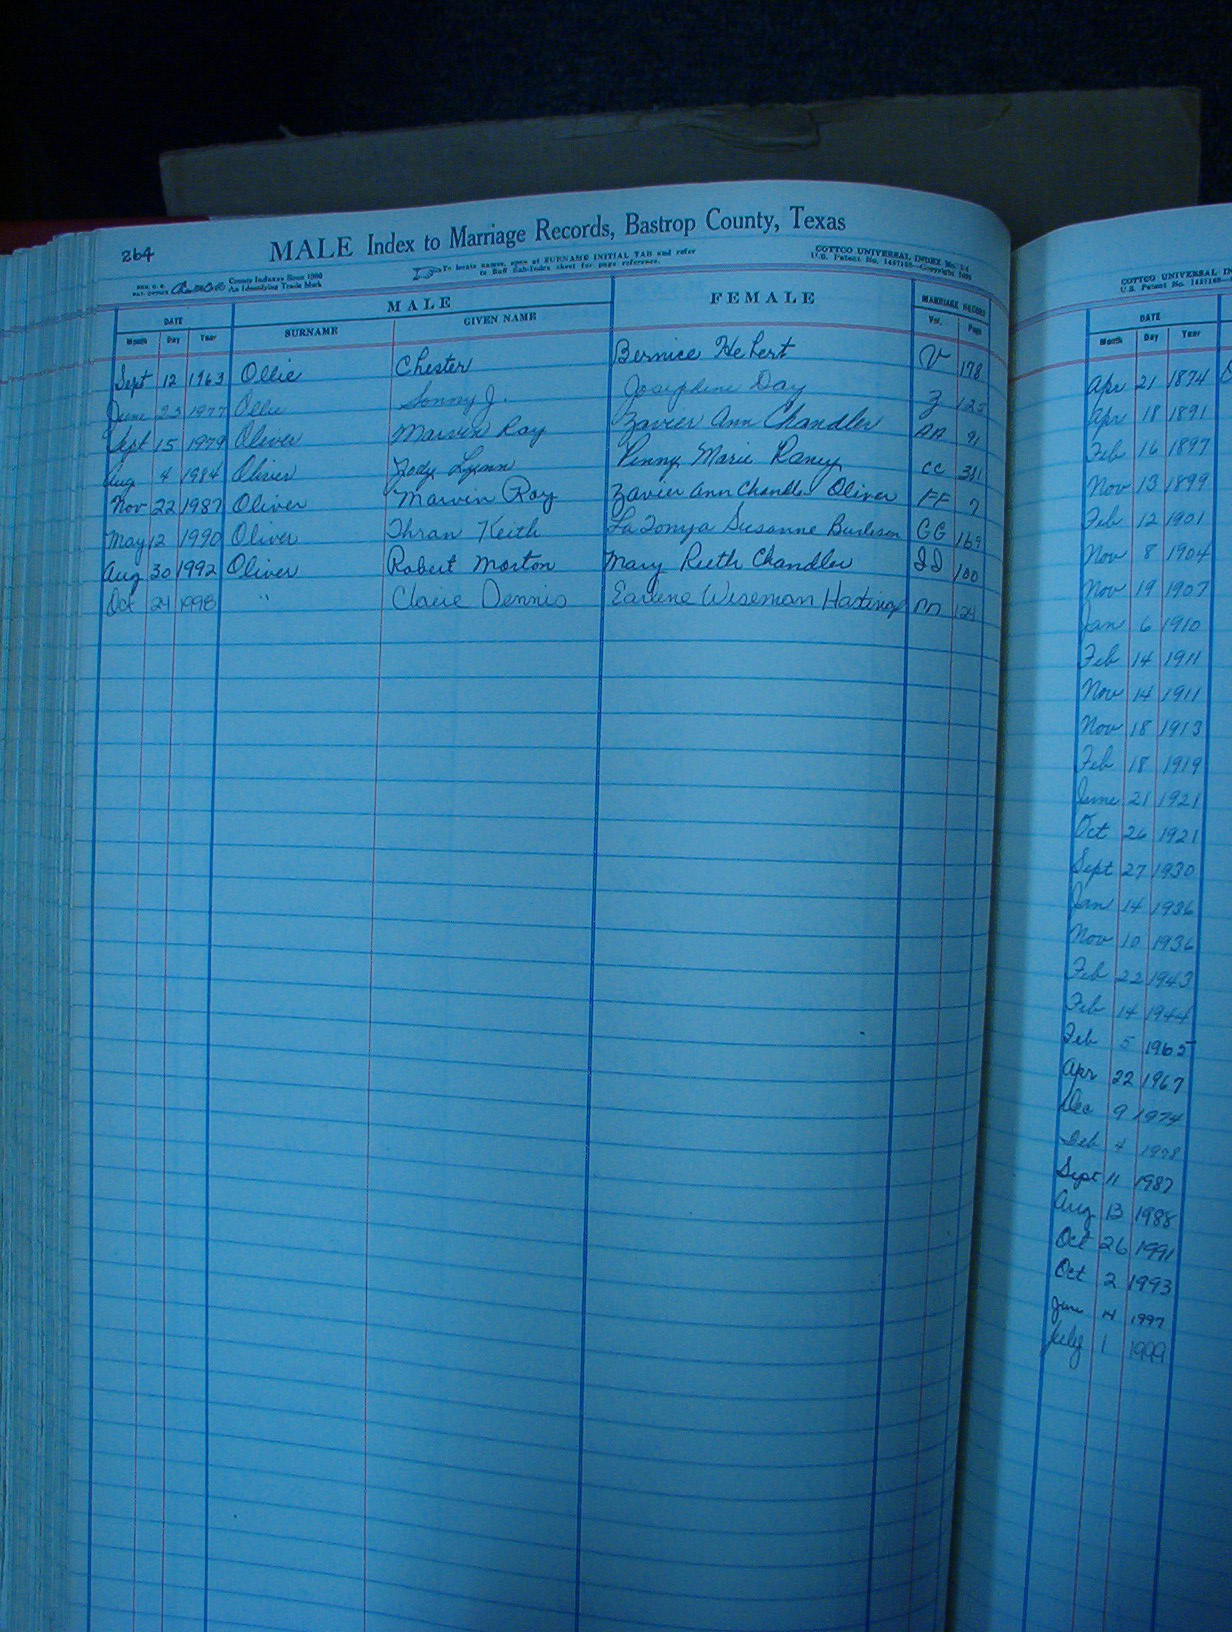 264
MALE Index to Marriage Records, Bastrop County, Texas
REG. U. S. PAT. OFFICE County Indexes Since 1900 An Identifying Trade Mark
To locate names, open at SURNAME INITIAL TAB and refer to Buff Sub-Index sheet for page reference.
COTTCO UNIVERSAL INDEX
U.S. Patent No.
DATE MALE FEMALE MARRIAGE RECORD
Month Day Year SURNAME GIVEN NAME Vol. Page
Sept 12 1963 Ollie Chester Bernice Hebert V 178
June 23 1977 Ollie Sonny J. Josephine Day Z 125
Sept 15 1979 Oliver Marvin Ray Zavier Ann Chandler AA 91
Aug 4 1984 Oliver Jody Lynn Penny Marie Raney CC 381
Nov 22 1987 Oliver Marvin Ray Zavier Ann Chandler Oliver FF 7
May 12 1990 Oliver Thran Keith LaTonya Susanne Burleson GG 169
Aug 30 1992 Oliver Robert Morton Mary Ruth Chandler II 100
Oct 24 1998 " Dennis Earlene Wiseman Hastings 124
COTTCO UNIVERSAL IN
U.S. Patent No.
DATE
Month Day Year
Apr 21 1874
Apr 18 1891
Feb 16 1897
Nov 13 1899
Feb 12 1901
Nov 8 1904
Nov 19 1907
Jan 6 1910
Feb 14 1911
Nov 14 1911
Nov 18 1913
Feb 18 1919
June 21 1921
Oct 26 1921
Sept 27 1930
Jan 14 1936
Nov 10 1936
Feb 22 1943
Feb 14 1944
Feb 5 1965
Apr 22 1967
Dec 9 1974
Feb 4 1978
Sept 11 1987
Aug 13 1988
Oct 26 1991
Oct 2 1993
June 14 1997
July 1 1999